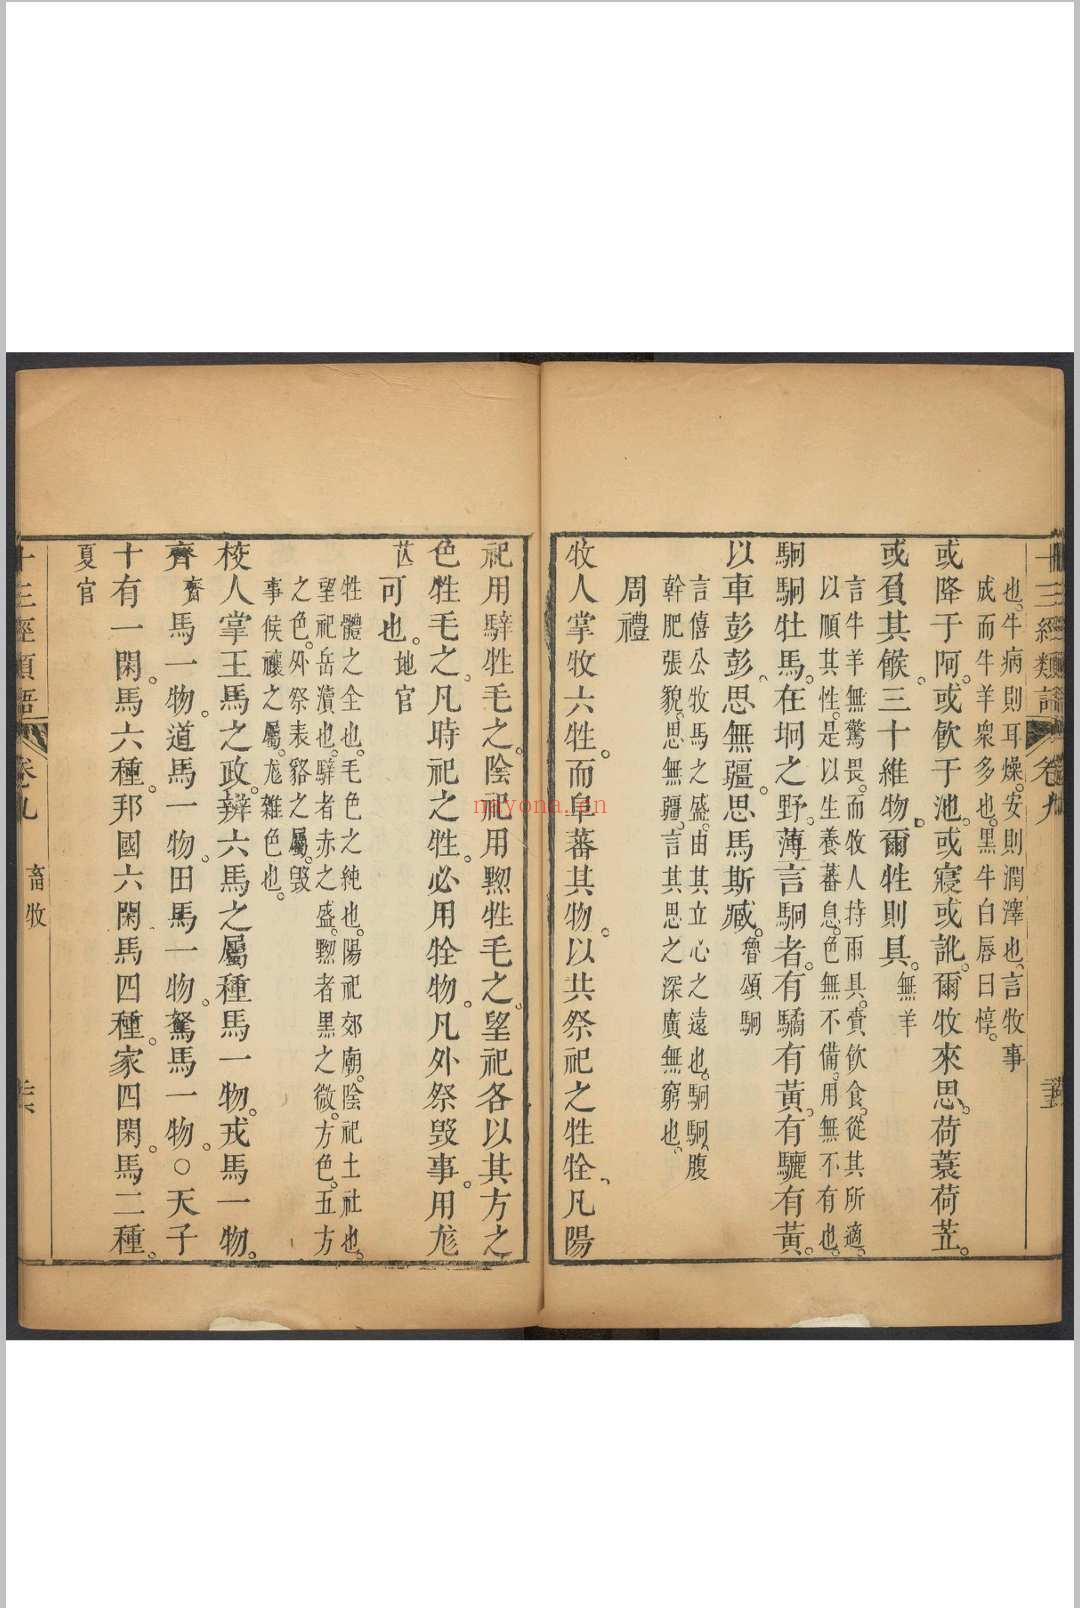 十三經類語 卷九
也。牛病則耳燥。安則潤澤也。言牧事
成而牛羊衆多也。黑牛白唇曰犉。
或降于阿。或飲于池。或寢或訛。爾牧來思。荷蓑荷笠。
或負其餱。三十維物。爾牲則具。無羊
言牛羊無驚畏。而牧人持雨具。賫飲食。從其所適。
以順其性。是以生養蕃息。色無不備。用無不有也。
駉駉牡馬。在坰之野。薄言駉者。有驈有黃。有驪有黃。
以車彭彭。思無疆。思馬斯臧。魯頌駉
言僖公牧馬之盛。由其立心之遠也。駉駉、腹
幹肥張貌。思無疆、言其思之深廣無窮也。
周禮
牧人掌牧六牲。而阜蕃其物。以共祭祀之牲牷、凡陽
祀用騂牲毛之。陰祀用黝牲毛之。望祀各以其方之
色牲毛之。凡時祀之牲。必用牷物。凡外祭毀事。用尨
可也。地官
牲體之全也。毛色之純也。陽祀郊廟。陰祀土社也。
望祀岳瀆也。騂者赤之盛。黝者黑之微。方色。五方
之色。外祭表貉之屬。毀
事候禳之屬。尨雜色也。
校人掌王馬之政。辨六馬之屬種馬一物。戎馬一物。
齊齊馬一物。道馬一物。田馬一物。駑馬一物。○天子
十有一閑。馬六種。邦國六閑馬四種。家四閑。馬二種。
夏官
十三經類語 卷九 畜牧